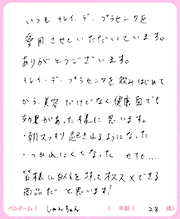 いつもキレイ・デー・プラセンタを
愛用させていただいています。
ありがとうございます。
キレイ・デー・プラセンタを飲みはじめて
から、美容だけでなく健康面でも
効果があった様に思います。
・朝スッキリ起きれるようになった
・つかれにくくなった etc....
皆様に自信を持ってオススメできる
商品だと思います!
ペンネーム( しゅんちゃん )年齢( 28 歳)